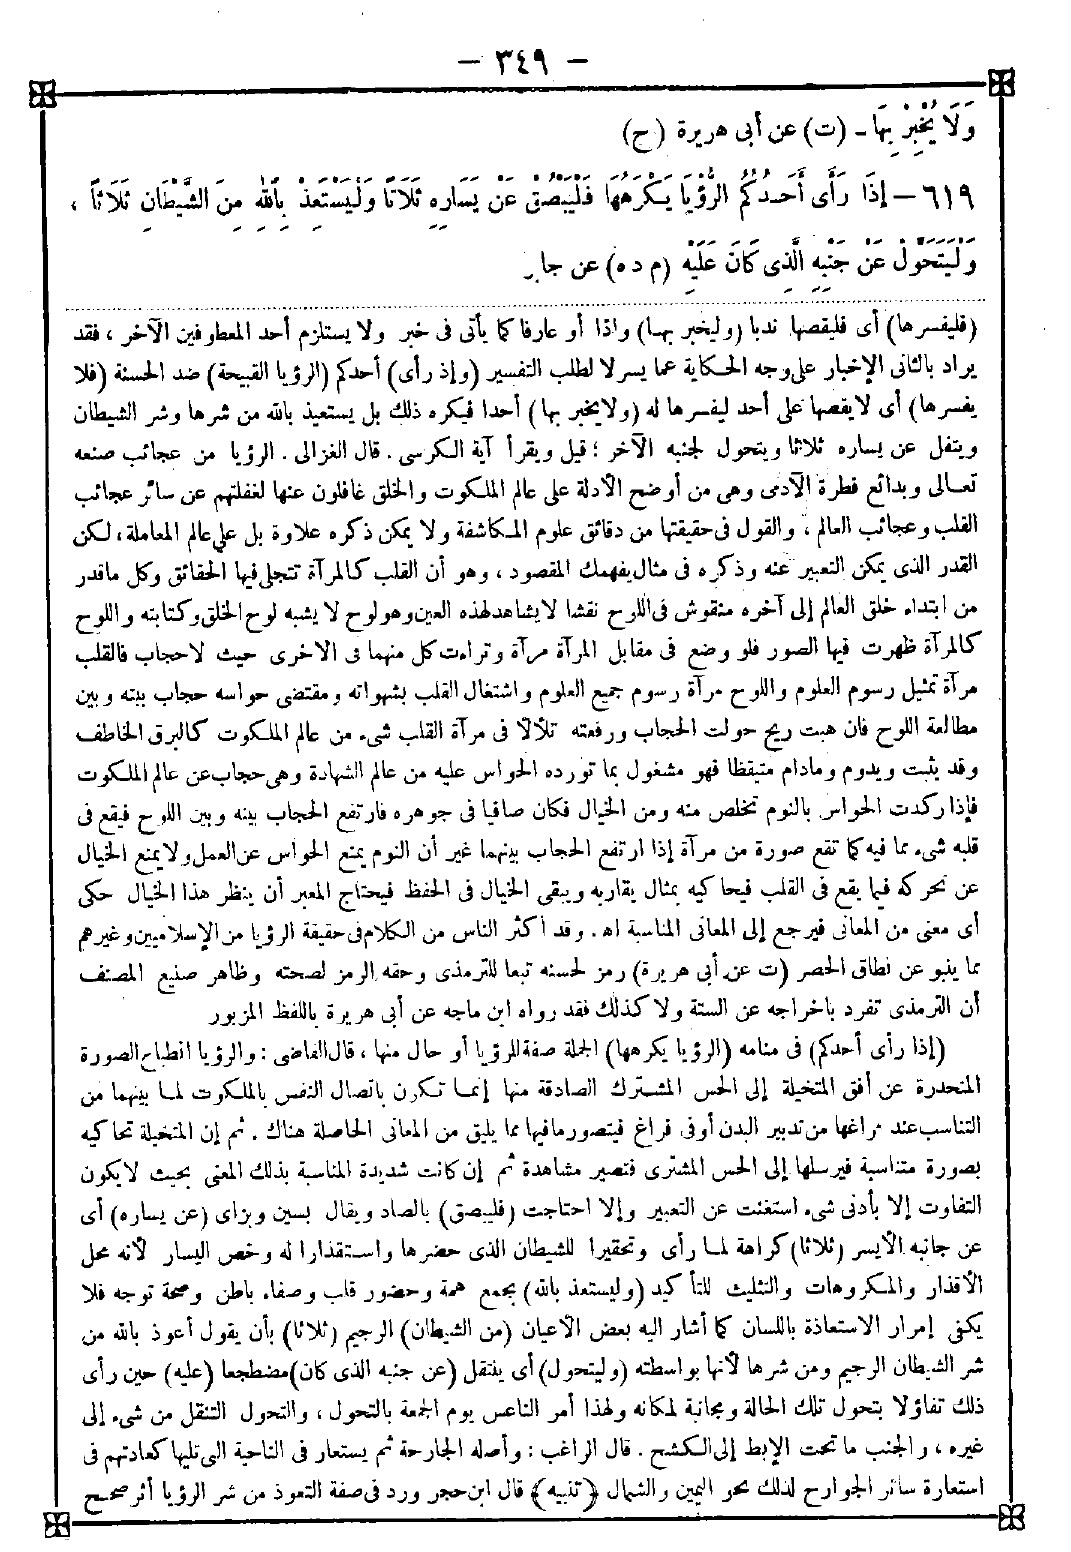 — ٣٤٩ —
وَلَا يُخْبِرْ بِهَا - (ت) عن أبى هريرة (ح)
٦١٩ - إِذَا رَأَى أَحَدُكُمُ الرُّؤْيَا يَكْرَهُهَا فَلْيَبْصُقْ عَنْ يَسَارِهِ ثَلَاثًا وَلْيَسْتَعِذْ بِاللهِ مِنَ الشَّيْطَانِ ثَلَاثاً ،
وَلْيَتَحَوَّلْ عَنْ جَنْبِهِ الَّذِى كَانَ عَلَيْهِ (م د ه) عن جابر
(فليفسرها) أى فليقصها ندبا (وليخبر بها) واذا أو عارفا كما يأتى فى خبر ولا يستلزم أحد المعطوفين الآخر ، فقد
يراد بالثانى الإخبار على وجه الحكاية عما يسر لا لطلب التفسير (وإذ رأى) أحدكم (الرؤيا القبيحة) ضد الحسنة (فلا
يفسرها) أى لا يقصها على أحد ليفسرها له (ولا يخبر بها) أحدا فيكره ذلك بل يستعيذ بالله من شرها وشر الشيطان
ويتفل عن يساره ثلاثا ويتحول لجنبه الآخر ؛ قيل ويقرأ آية الكرسى . قال الغزالى . الرؤيا من عجائب صنعه
تعالى وبدائع فطرة الآدمى وهى من أوضح الأدلة على عالم الملكوت والخلق غافلون عنها لغفلتهم عن سائر عجائب
القلب وعجائب العالم ، والقول فى حقيقتها من دقائق علوم المكاشفة ولا يمكن ذكره علاوة بل على عالم المعاملة ، لكن
القدر الذى يمكن التعبير عنه وذكره فى مثال يفهمك المقصود ، وهو أن القلب كالمرآة تتجلى فيها الحقائق وكل ماقدر
من ابتداء خلق العالم إلى آخره منقوش فى اللوح نقشا لا يشاهد لهذه العين وهو لوح لا يشبه لوح الخلق وكتابته واللوح
كالمرآة ظهرت فيها الصور فلو وضع فى مقابل المرآة مرآة وتراءت كل منهما فى الاخرى حيث لا حجاب فالقلب
مرآة تمثيل رسوم العلوم واللوح مرآة رسوم جميع العلوم واشتغال القلب بشهواته ومقتضى حواسه حجاب بينه وبين
مطالعة اللوح فان هبت ريح حولت الحجاب ورفعته تلألأ فى مرآة القلب شىء من عالم الملكوت كالبرق الخاطف
وقد يثبت ويدوم ومادام متيقظا فهو مشغول بما تورده الحواس عليه من عالم الشهادة وهى حجاب عن عالم الملكوت
فإذا ركدت الحواس بالنوم تخلص منه ومن الخيال فكان صافيا فى جوهره فارتفع الحجاب بينه وبين اللوح فيقع فى
قلبه شىء مما فيه كما تقع صورة من مرآة إذا ارتفع الحجاب بينهما غير أن النوم يمنع الحواس عن العمل ولا يمنع الخيال
عن تحركه فيما يقع فى القلب فيحاكيه بمثال يقاربه ويبقى الخيال فى الحفظ فيحتاج المعبر أن ينظر هذا الخيال حكى
أى معنى من المعانى فيرجع إلى المعانى المناسبة اه . وقد أكثر الناس من الكلام فى حقيقة الرؤيا من الإسلاميين وغيرهم
بما ينبو عن نطاق الحصر (ت عن أبى هريرة) رمز لحسنه تبعا للترمذى وحقه الرمز لصحته وظاهر صنيع المصنف
أن الترمذى تفرد باخراجه عن الستة ولا كذلك فقد رواه ابن ماجه عن أبى هريرة باللفظ المزبور
(إذا رأى أحدكم) فى منامه (الرؤيا يكرهها) الجملة صفة للرؤيا أو حال منها ، قال القاضى : والرؤيا انطباع الصورة
المنحدرة عن أفق المتخيلة إلى الحس المشترك الصادقة منها إنما تكون باتصال النفس بالملكوت لما بينهما من
التناسب عند فراغها من تدبير البدن أوفى فراغ فيتصور مافيها مما يليق من المعانى الحاصلة هناك . ثم إن المتخيلة تحاكيه
بصورة متناسبة فيرسلها إلى الحس المشترى فتصير مشاهدة ثم إن كانت شديدة المناسبة بذلك المعنى بحيث لا يكون
التفاوت إلا بأدنى شىء استغنت عن التعبير وإلا احتاجت (فليبصق) بالصاد ويقال بسين وبزاى (عن يساره) أى
عن جانبه الأيسر (ثلاثا) كراهة لما رأى وتحقيرا للشيطان الذى حضرها واستقذارا له وخص اليسار لأنه محل
الأقذار والمكروهات والتثليث للتأكيد (وليستعذ بالله) بجمع همة وحضور قلب وصفاء باطن وصحة توجه فلا
يكفى إمرار الاستعاذة باللسان كما أشار اليه بعض الأعيان (من الشيطان) الرجيم (ثلاثا) بأن يقول أعوذ بالله من
شر الشيطان الرجيم ومن شرها لأنها بواسطته (وليتحول) أى ينتقل (عن جنبه الذى كان) مضطجعا (عليه) حين رأى
ذلك تفاؤلا بتحول تلك الحالة ومجانبة لمكانه ولهذا أمر الناعس يوم الجمعة بالتحول ، والتحول التنقل من شىء إلى
غيره ، والجنب ما تحت الإبط إلى الكشح . قال الراغب : وأصله الجارحة ثم يستعار فى الناحية التى تليها كعادتهم فى
استعارة سائر الجوارح لذلك نحو اليمين والشمال ﴿تنبيه﴾ قال ابن حجر ورد فى صفة التعوذ من شر الرؤيا أثر صحيح